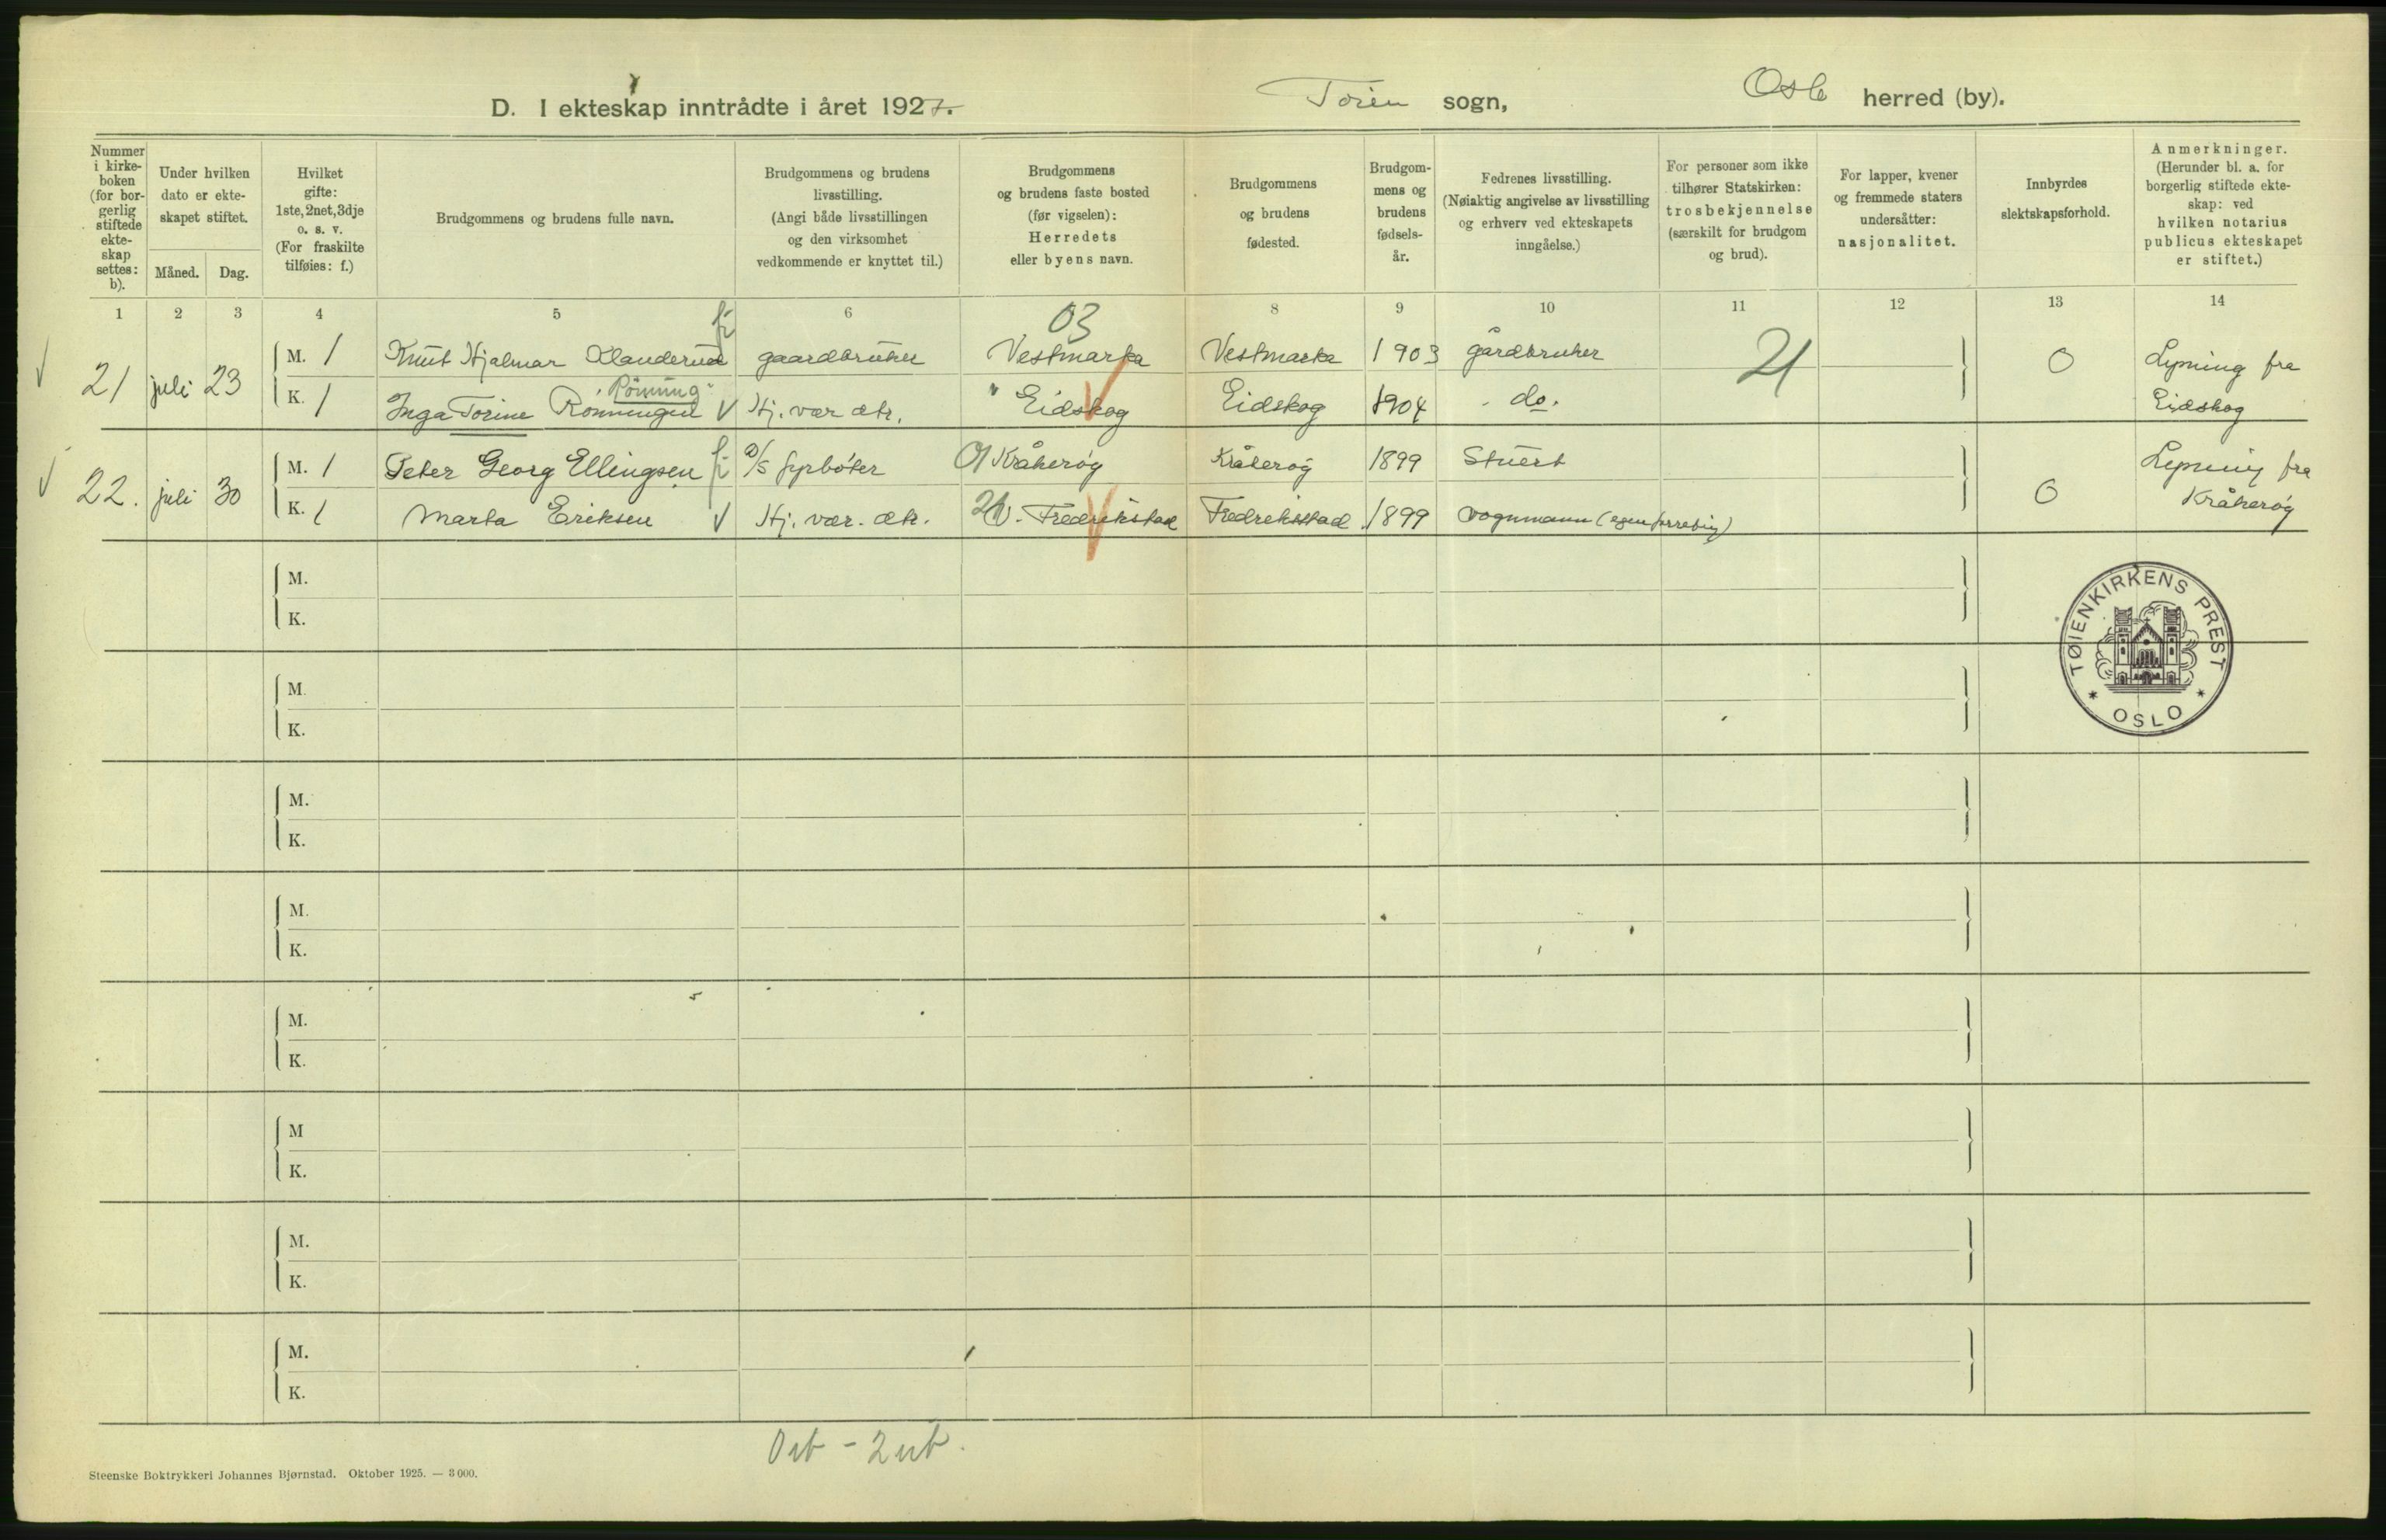 D. I ekteskap inntrådte i året 1927. Tøien sogn, Oslo herred (by).
Nummer i kirkeboken (for borgerlig stiftede ekteskap settes: b).
Under hvilken dato er ekteskapet stiftet.
Måned. Dag.
Hvilket gifte: 1ste, 2net, 3dje o. s. v. (For fraskilte tilføies: f.)
Brudgommens og brudens fulle navn.
Brudgommens og brudens livsstilling. (Angi både livsstillingen og den virksomhet vedkommende er knyttet til.)
Brudgommens og brudens faste bosted (før vigselen): Herredets eller byens navn.
Brudgommens og brudens fødested.
Brudgommens og brudens fødselsår.
Fedrenes livsstilling. (Nøiaktig angivelse av livsstilling og erhverv ved ekteskapets inngåelse.)
For personer som ikke tilhører Statskirken: trosbekjennelse (særskilt for brudgom og brud).
For lapper, kvener og fremmede staters undersåtter: nasjonalitet.
Innbyrdes slektskapsforhold.
Anmerkninger. (Herunder bl. a. for borgerlig stiftede ekteskap: ved hvilken notarius publicus ekteskapet er stiftet.)
1 2 3 4 5 6 8 9 10 11 12 13 14
03
21 juli 23 M. 1 Knut Hjalmar Klanderud gaardbruker Vestmarka Vestmarka 1903 gårdbruker 21 0 Lysning fra
Rönning
K. 1 Inga Torine Rönningen V Hj. vær. dtr. Eidskog Eidskog 1904 do. Eidskog
22. juli 30 M. 1 Peter Georg Ellingsen D/S fyrböter 01 Kråkeröy Kråkeröy 1899 Stuert 0 Lysning fra
K. 1 Marta Eriksen V Hj. vær. dtr. Fredrikstad Fredrikstad 1899 vognmann (egen forretning) Kråkeröy
M.
K.
TØIENKIRKENS PREST
* OSLO *
M.
K.
M.
K.
M.
K.
M.
K.
M
K.
M.
K.
M.
K.
Steenske Boktrykkeri Johannes Bjørnstad. Oktober 1925. — 3 000.